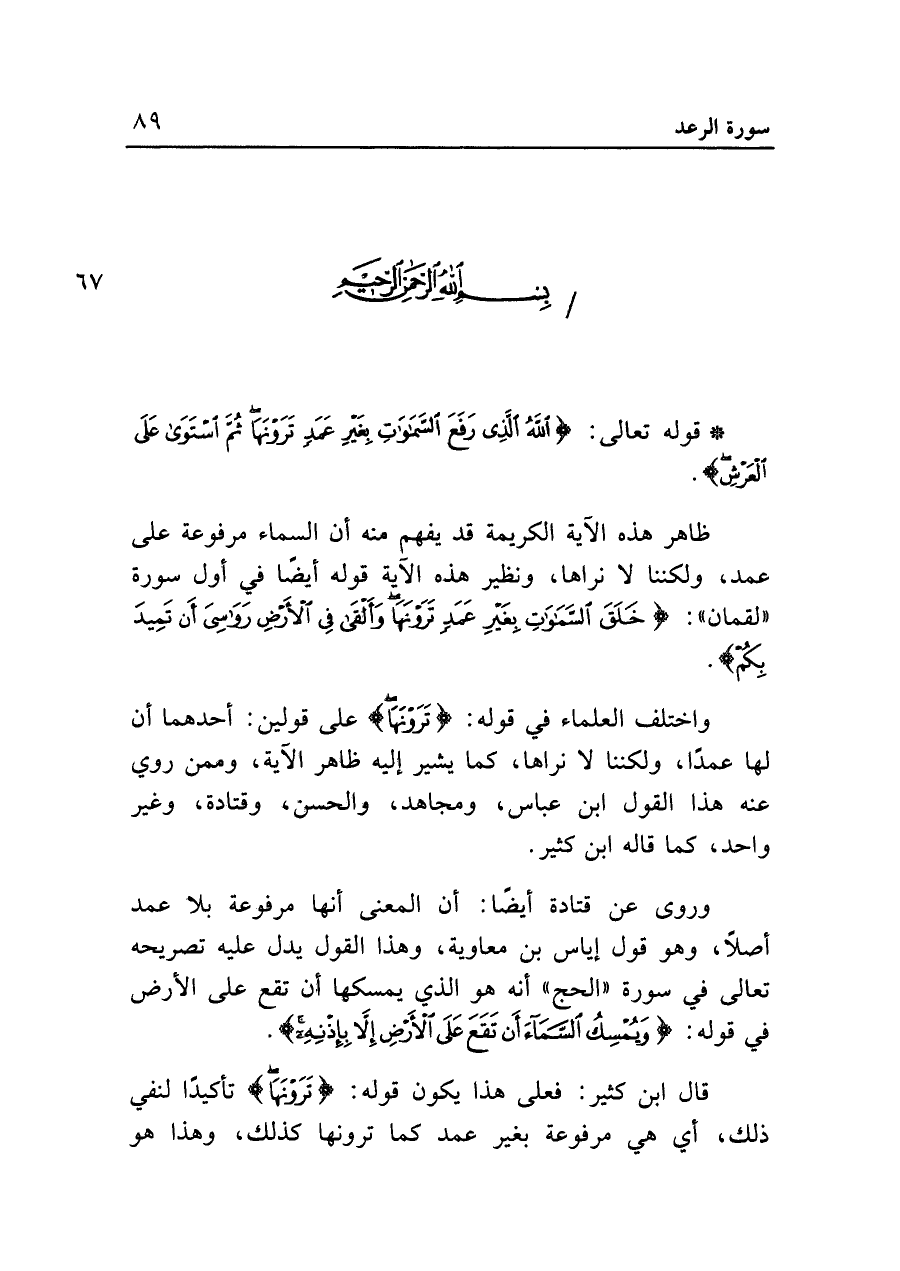 سورة الرعد ٨٩
/ بسم الله الرحمن الرحيم ٦٧
* قوله تعالى: ﴿ٱللَّهُ ٱلَّذِى رَفَعَ ٱلسَّمَٰوَٰتِ بِغَيْرِ عَمَدٍ تَرَوْنَهَا ۖ ثُمَّ ٱسْتَوَىٰ عَلَى
ٱلْعَرْشِ ۖ﴾.
ظاهر هذه الآية الكريمة قد يفهم منه أن السماء مرفوعة على
عمد، ولكننا لا نراها، ونظير هذه الآية قوله أيضًا في أول سورة
«لقمان»: ﴿خَلَقَ ٱلسَّمَٰوَٰتِ بِغَيْرِ عَمَدٍ تَرَوْنَهَا ۖ وَأَلْقَىٰ فِى ٱلْأَرْضِ رَوَٰسِىَ أَن تَمِيدَ
بِكُمْ﴾.
واختلف العلماء في قوله: ﴿تَرَوْنَهَا ۖ﴾ على قولين: أحدهما أن
لها عمدًا، ولكننا لا نراها، كما يشير إليه ظاهر الآية، وممن روي
عنه هذا القول ابن عباس، ومجاهد، والحسن، وقتادة، وغير
واحد، كما قاله ابن كثير.
وروى عن قتادة أيضًا: أن المعنى أنها مرفوعة بلا عمد
أصلاً، وهو قول إياس بن معاوية، وهذا القول يدل عليه تصريحه
تعالى في سورة «الحج» أنه هو الذي يمسكها أن تقع على الأرض
في قوله: ﴿وَيُمْسِكُ ٱلسَّمَآءَ أَن تَقَعَ عَلَى ٱلْأَرْضِ إِلَّا بِإِذْنِهِۦٓ ۚ﴾.
قال ابن كثير: فعلى هذا يكون قوله: ﴿تَرَوْنَهَا ۖ﴾ تأكيدًا لنفي
ذلك، أي هي مرفوعة بغير عمد كما ترونها كذلك، وهذا هو